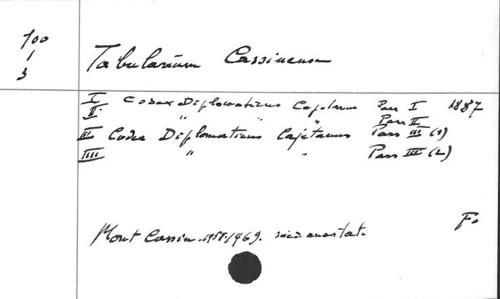 700
1
3
Tabularium Casinense
I Codex Diplomaticus Cajetanus Pars I 1887
II " " " Pars II
III Codex Diplomaticus Cajetanus Pars III (1)
IIII " " Pars III (2)
Fo
Mont Cassin 1958-1969. anastat.